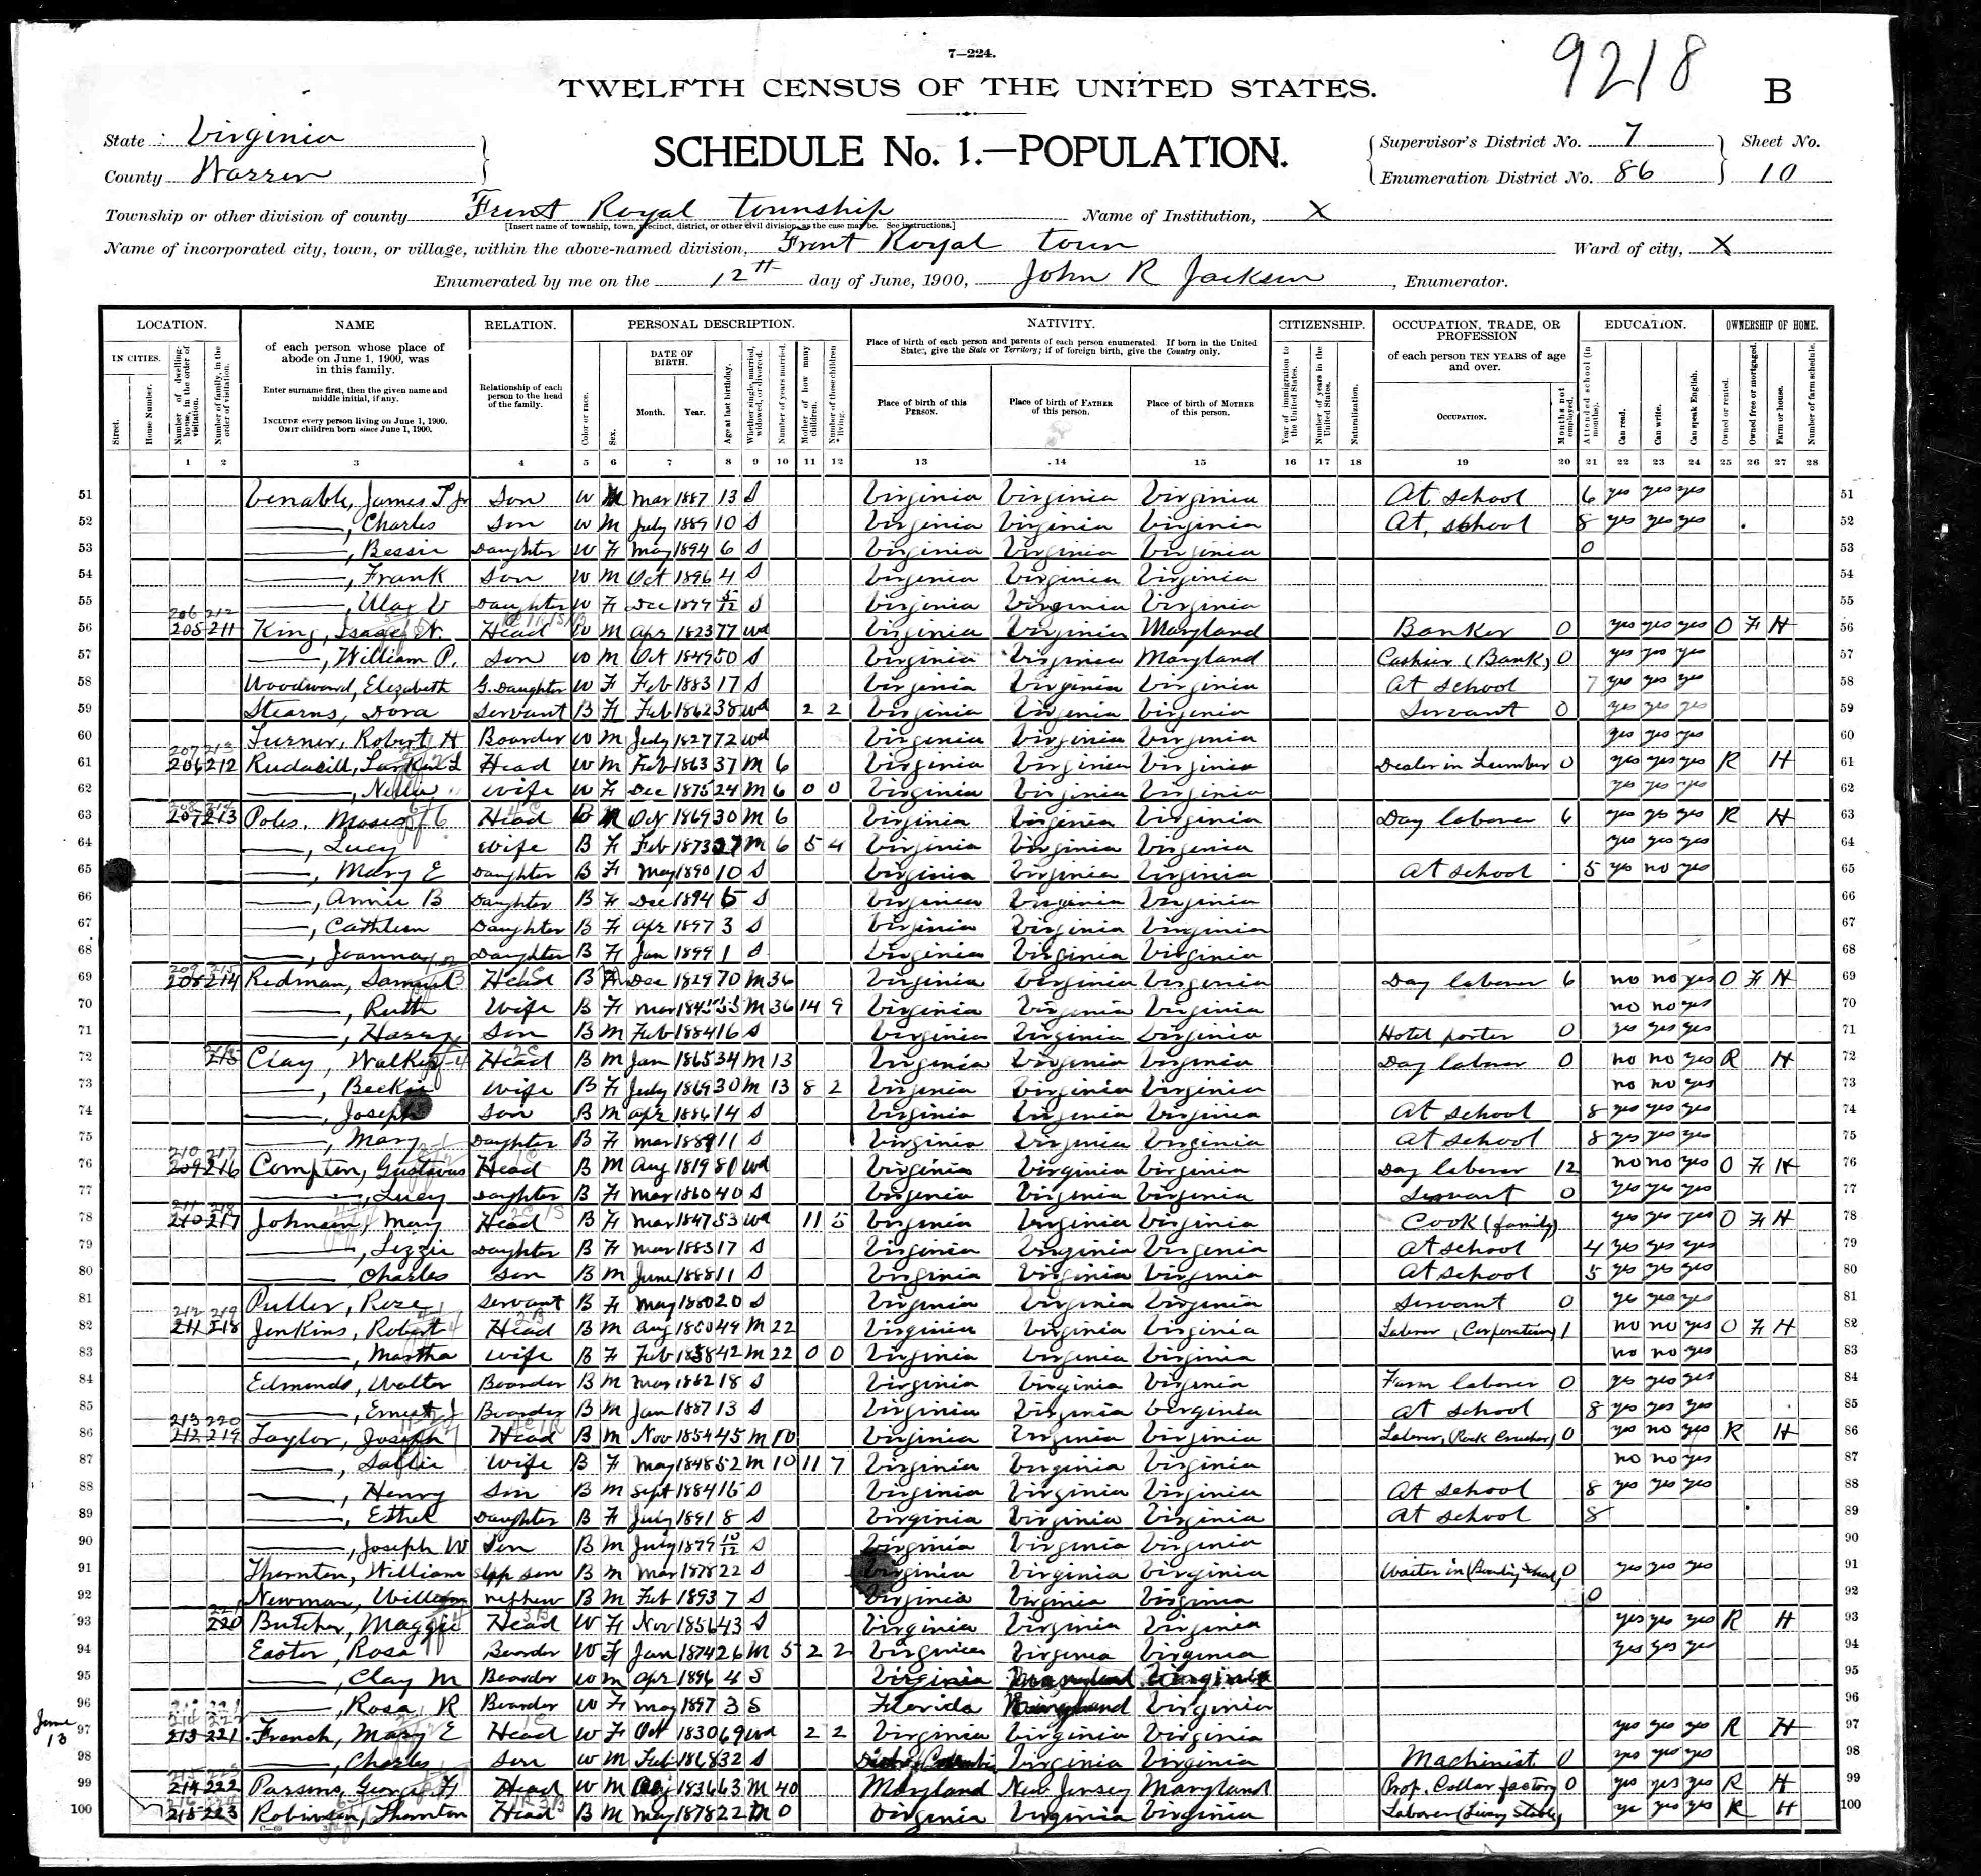 7—224.
9218
TWELFTH CENSUS OF THE UNITED STATES.
B
State Virginia
County Warren
SCHEDULE No. 1.—POPULATION.
Supervisor's District No. 7
Enumeration District No. 86
Sheet No.
10
Township or other division of county Front Royal township
[Insert name of township, town, precinct, district, or other civil division, as the case may be. See instructions.]
Name of Institution, X
Name of incorporated city, town, or village, within the above-named division, Front Royal town
Ward of city, X
Enumerated by me on the 12th day of June, 1900, John R Jackson, Enumerator.
LOCATION.
IN CITIES.
Street.
House Number.
Number of dwelling-house, in the order of visitation.
Number of family, in the order of visitation.
NAME
of each person whose place of abode on June 1, 1900, was in this family.
Enter surname first, then the given name and middle initial, if any.
INCLUDE every person living on June 1, 1900.
OMIT children born since June 1, 1900.
RELATION.
Relationship of each person to the head of the family.
PERSONAL DESCRIPTION.
Color or race.
Sex.
DATE OF BIRTH.
Month.
Year.
Age at last birthday.
Whether single, married, widowed, or divorced.
Number of years married.
Mother of how many children.
Number of these children living.
NATIVITY.
Place of birth of each person and parents of each person enumerated. If born in the United States, give the State or Territory; if of foreign birth, give the Country only.
Place of birth of this PERSON.
Place of birth of FATHER of this person.
Place of birth of MOTHER of this person.
CITIZENSHIP.
Year of immigration to the United States.
Number of years in the United States.
Naturalization.
OCCUPATION, TRADE, OR PROFESSION
of each person TEN YEARS of age and over.
OCCUPATION.
Months not employed.
EDUCATION.
Attended school (in months).
Can read.
Can write.
Can speak English.
OWNERSHIP OF HOME.
Owned or rented.
Owned free or mortgaged.
Farm or house.
Number of farm schedule.
1 2 3 4 5 6 7 8 9 10 11 12 13 14 15 16 17 18 19 20 21 22 23 24 25 26 27 28
51 Venable, James T Jr Son W M Mar 1887 13 S Virginia Virginia Virginia At school 6 yes yes yes 51
52 ——, Charles Son W M July 1889 10 S Virginia Virginia Virginia At school 8 yes yes yes 52
53 ——, Bessie Daughter W F May 1894 6 S Virginia Virginia Virginia 0 53
54 ——, Frank Son W M Oct 1896 4 S Virginia Virginia Virginia 54
55 ——, V Daughter W F Dec 1899 5/12 S Virginia Virginia Virginia 55
56 205 211 King, Isaac N. Head W M Apr 1823 77 Wd Virginia Virginia Maryland Banker 0 yes yes yes O F H 56
57 ——, William P. Son W M Oct 1849 50 S Virginia Virginia Maryland Cashier (Bank) 0 yes yes yes 57
58 Woodward, Elizabeth G. Daughter W F Feb 1883 17 S Virginia Virginia Virginia At school 7 yes yes yes 58
59 Stearns, Dora Servant B F Feb 1862 38 Wd 2 2 Virginia Virginia Virginia Servant 0 yes yes yes 59
60 Turner, Robert H Boarder W M July 1827 72 Wd Virginia Virginia Virginia yes yes yes 60
61 206 212 Rudacill, Larkin L Head W M Feb 1863 37 M 6 Virginia Virginia Virginia Dealer in Lumber 0 yes yes yes R H 61
62 ——, Nellie wife W F Dec 1875 24 M 6 0 0 Virginia Virginia Virginia yes yes yes 62
63 207 213 Poles, Moses Head B M Oct 1869 30 M 6 Virginia Virginia Virginia Day laborer 6 yes yes yes R H 63
64 ——, Lucy wife B F Feb 1873 27 M 6 5 4 Virginia Virginia Virginia yes yes yes 64
65 ——, Mary E Daughter B F May 1890 10 S Virginia Virginia Virginia At school 5 yes no yes 65
66 ——, Annie B Daughter B F Dec 1894 5 S Virginia Virginia Virginia 66
67 ——, Cathleen Daughter B F Apr 1897 3 S Virginia Virginia Virginia 67
68 ——, Joanna Daughter B F Jan 1899 1 S Virginia Virginia Virginia 68
69 208 214 Redman, Samuel B Head B M Dec 1829 70 M 36 Virginia Virginia Virginia Day laborer 6 no no yes O F H 69
70 ——, Ruth Wife B F Mar 1845 55 M 36 14 9 Virginia Virginia Virginia no no yes 70
71 ——, Harry Son B M Feb 1884 16 S Virginia Virginia Virginia Hotel porter 0 yes yes yes 71
72 215 Clay, Walker Head B M Jan 1865 34 M 13 Virginia Virginia Virginia Day laborer 0 no no yes R H 72
73 ——, Beckie wife B F July 1869 30 M 13 8 2 Virginia Virginia Virginia no no yes 73
74 ——, Joseph Son B M Apr 1886 14 S Virginia Virginia Virginia At school 8 yes yes yes 74
75 ——, Mary Daughter B F Mar 1889 11 S Virginia Virginia Virginia At school 8 yes yes yes 75
76 209 216 Compton, Gustavus Head B M Aug 1819 80 Wd Virginia Virginia Virginia Day laborer 12 no no yes O F H 76
77 ——, Lucy Daughter B F Mar 1860 40 S Virginia Virginia Virginia Servant 0 yes yes yes 77
78 210 217 Johnson, Mary Head B F Mar 1847 53 Wd 11 5 Virginia Virginia Virginia Cook (family) yes yes yes O F H 78
79 ——, Lizzie Daughter B F Mar 1883 17 S Virginia Virginia Virginia At school 4 yes yes yes 79
80 —— Charles Son B M June 1888 11 S Virginia Virginia Virginia At school 5 yes yes yes 80
81 Puller, Rose Servant B F May 1880 20 S Virginia Virginia Virginia Servant 0 ye yes yes 81
82 211 218 Jenkins, Robert Head B M Aug 1850 49 M 22 Virginia Virginia Virginia Laborer (Corporation) 1 no no yes O F H 82
83 ——, Martha wife B F Feb 1858 42 M 22 0 0 Virginia Virginia Virginia no no yes 83
84 Edmonds, Walter Boarder B M Mar 1882 18 S Virginia Virginia Virginia Farm laborer 0 yes yes yes 84
85 ——, Ernest J Boarder B M Jan 1887 13 S Virginia Virginia Virginia At school 8 yes yes yes 85
86 212 219 Taylor, Joseph Head B M Nov 1854 45 M 10 Virginia Virginia Virginia Laborer, (Rock Crusher) 0 yes no yes R H 86
87 ——, Sallie wife B F May 1848 52 M 10 11 7 Virginia Virginia Virginia no no yes 87
88 ——, Henry Son B M Sept 1884 15 S Virginia Virginia Virginia At school 8 yes yes yes 88
89 ——, Ethel Daughter B F July 1891 8 S Virginia Virginia Virginia At school 8 89
90 ——, Joseph W Son B M July 1899 10/12 S Virginia Virginia Virginia 90
91 Thornton, William Step son B M Mar 1878 22 S Virginia Virginia Virginia Waiter in (Boarding School) 0 yes yes yes 91
92 Newman, William nephew B M Feb 1893 7 S Virginia Virginia Virginia 0 92
93 220 Butcher, Maggie Head W F Nov 1856 43 S Virginia Virginia Virginia yes yes yes R H 93
94 Easter, Rosa Boarder W F Jan 1874 26 M 5 2 2 Virginia Virginia Virginia yes yes yes 94
95 ——, Clay M Boarder W M Apr 1896 4 S Virginia Maryland Virginia 95
96 ——, Rosa R Boarder W F May 1897 3 S Florida Maryland Virginia 96
June 13
97 213 221 French, Mary E Head W F Oct 1830 69 Wd 2 2 Virginia Virginia Virginia yes yes yes R H 97
98 ——, Charles Son W M Feb 1868 32 S Dist of Columbia Virginia Virginia Machinist 0 yes yes yes 98
99 214 222 Parsons, George H Head W M 1836 63 M 40 Maryland New Jersey Maryland Prop. Collar factory 0 yes yes yes R H 99
100 215 223 Robinson, Thornton Head B M May 1878 22 M 0 Virginia Virginia Virginia Laborer (Livery Stable) ye yes yes R H 100